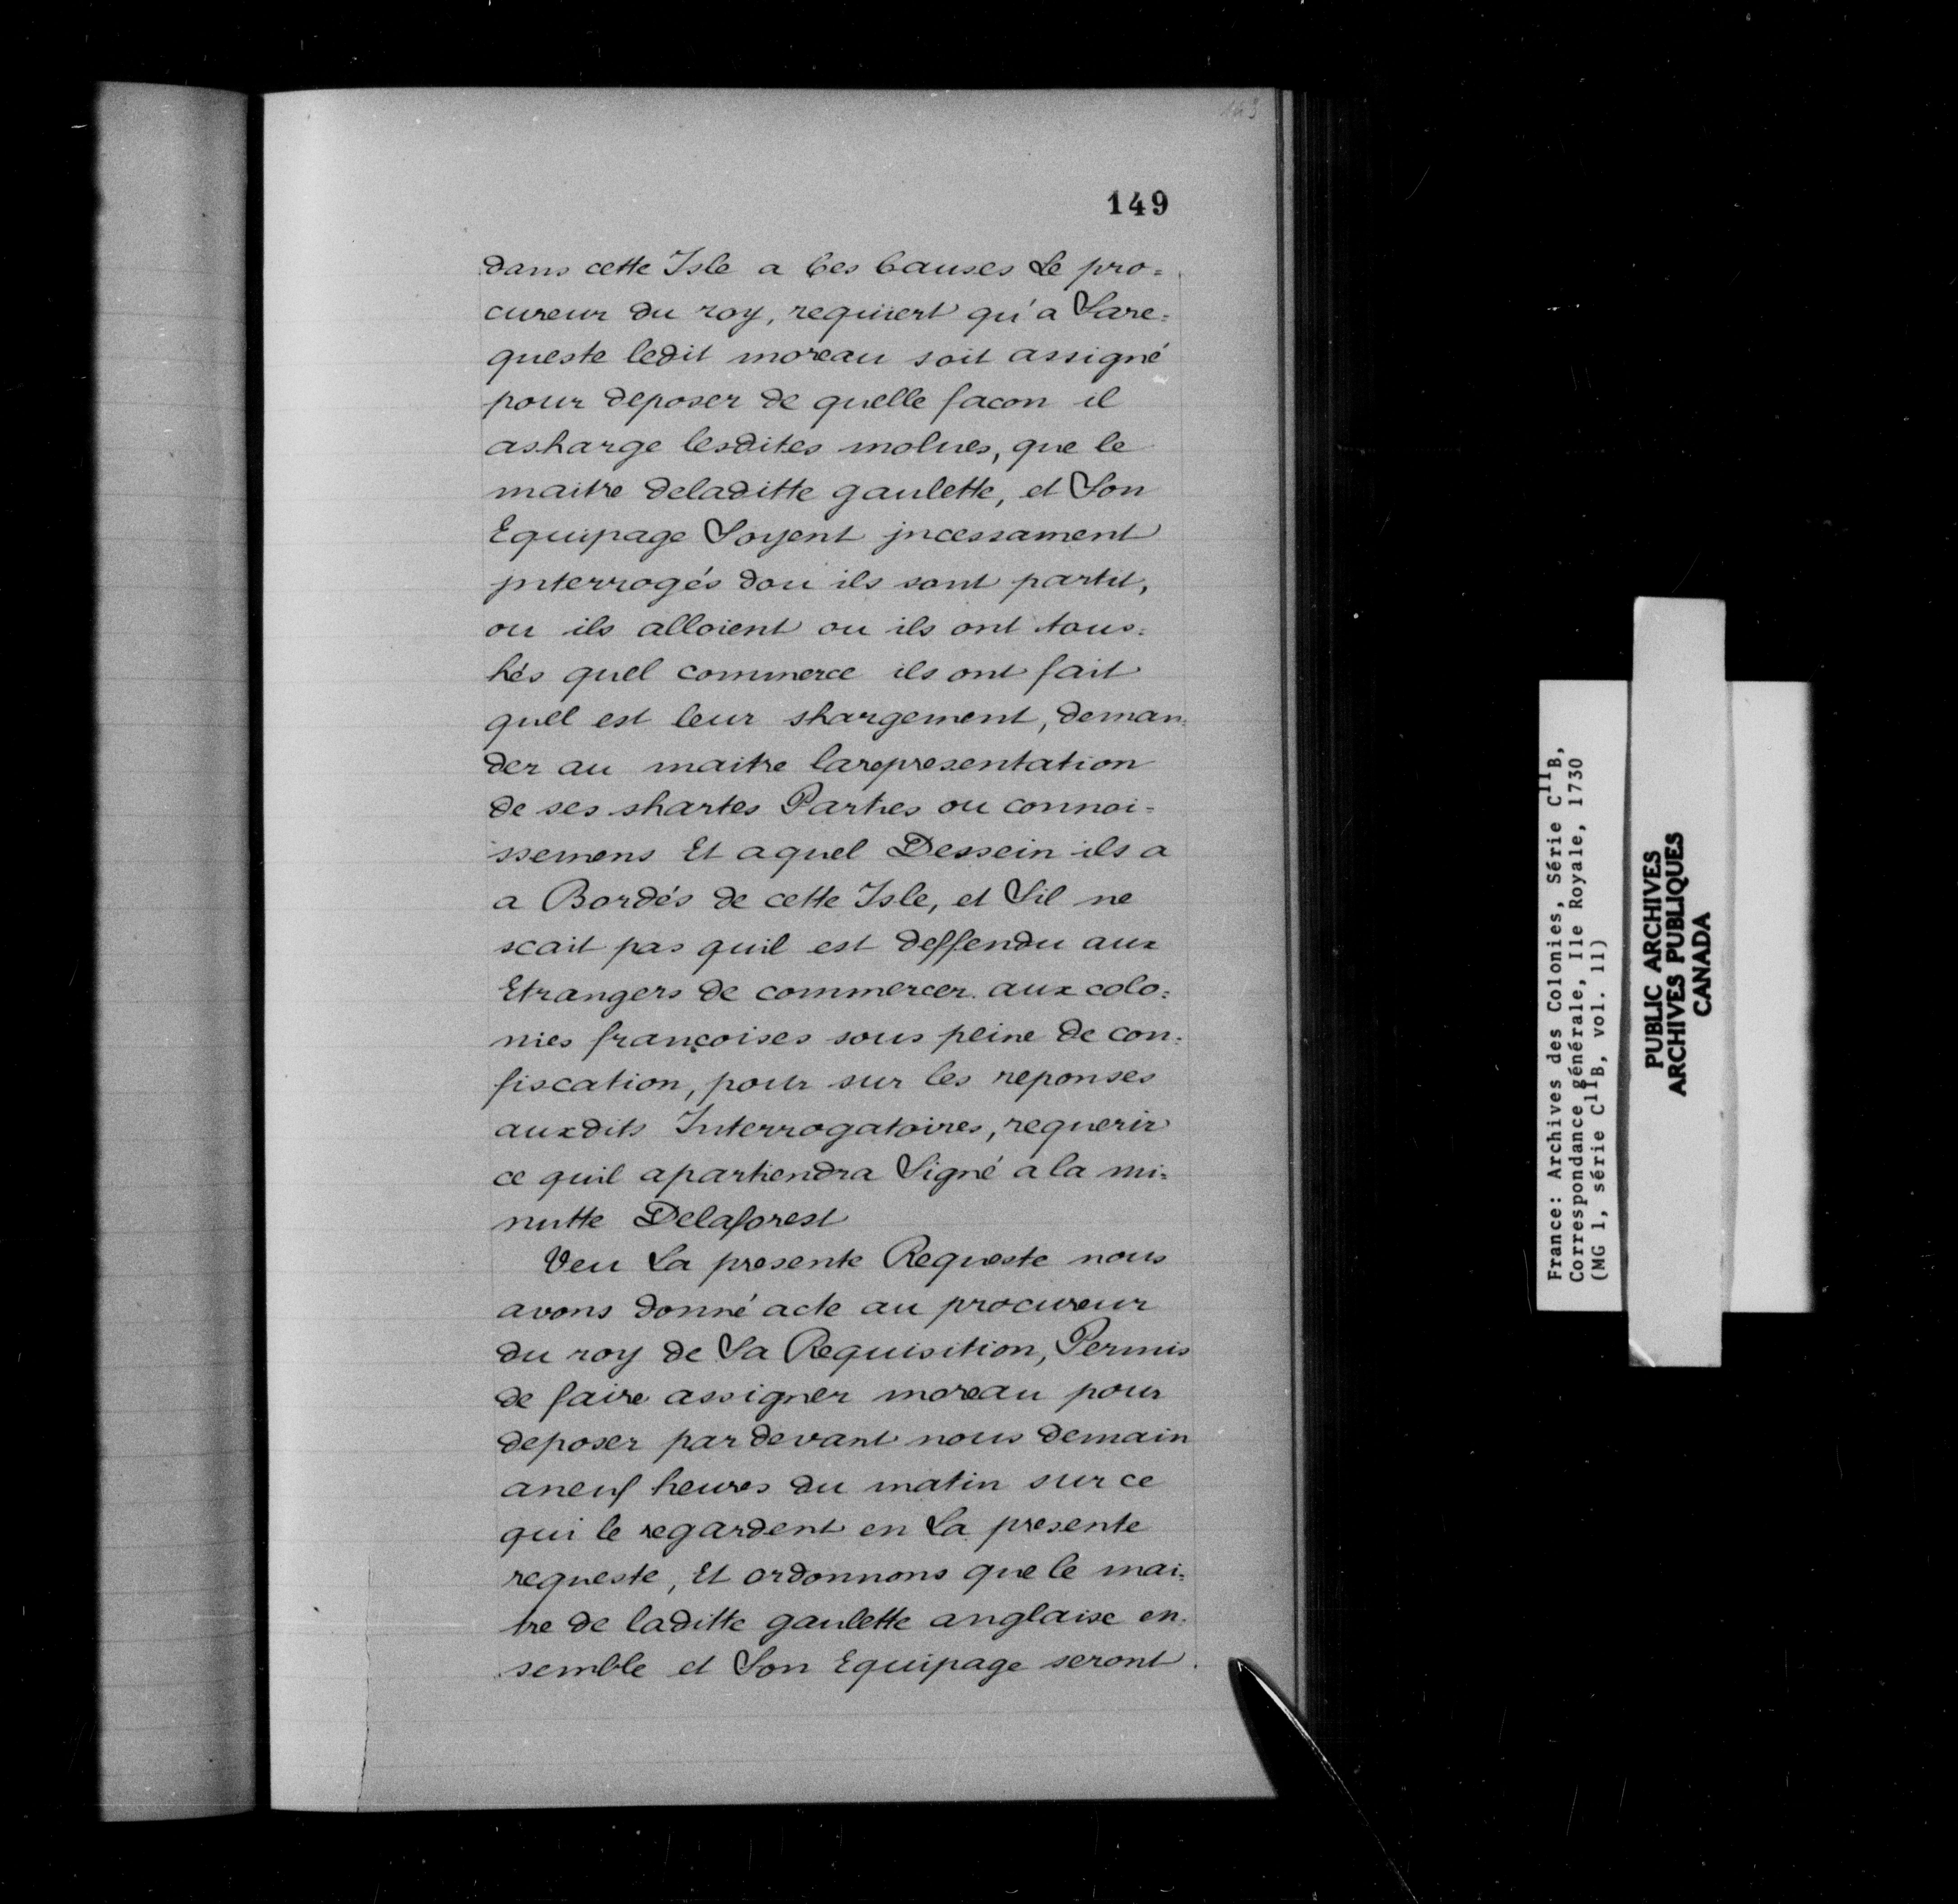 149
dans cette Isle a Ces Causes Le pro=
cureur du roy, requiert qu'a Sare=
queste ledit moreau soit assigné
pour deposer de quelle facon il
asharge lesdites molues, que le
maitre deladitte gaulette, et Son
Equipage Soyent jncessament
jnterrogés dou ils sont partit,
ou ils alloient ou ils ont tous=
hés quel commerce ils ont fait
quel est leur shargement, deman=
der au maitre larepresentation
de ses shartes Parties ou connoi=
ssemens Et aquel Dessein ils a
a Bordés de cette Isle, et Sil ne
scait pas quil est deffendu aux
Etrangers de commercer aux colo=
nies françoises sous peine de con=
fiscation, pour sur les reponses
auxdits Interrogatoires, requerir
ce quil apartiendra Signé a la mi=
nutte Delaforest
Veu La presente Requeste nous
avons donné acte au procureur
du roy de Sa Requisition, Permis
de faire assigner moreau pour
deposer pardevant nous demain
aneuf heures du matin sur ce
qui le regardent en La presente
requeste, Et ordonnons que le mai=
tre de laditte gaulette anglaise en=
semble et Son Equipage seront
France: Archives des Colonies, Série C11B,
Correspondance générale, Ile Royale, 1730
(MG 1, série C11B, vol. 11)
PUBLIC ARCHIVES
ARCHIVES PUBLIQUES
CANADA